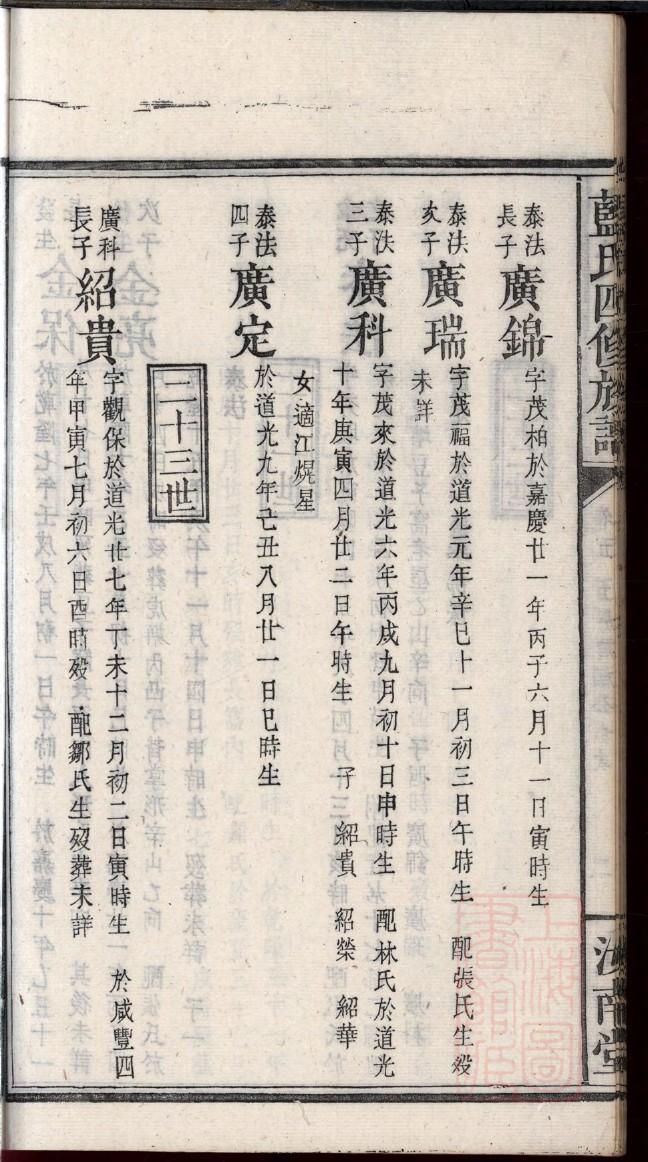 藍氏四修族譜
汝南堂
泰法長子 廣錦 字茂柏於嘉慶廿一年丙子六月十一日寅時生
泰法次子 廣瑞 字茂福於道光元年辛巳十一月初三日午時生 配張氏生殁
未詳
泰法三子 廣科 字茂來於道光六年丙戌九月初十日申時生 配林氏於道光
十年庚寅四月廿二日午時生 子 紹貴 紹榮 紹華
女適江熀星
泰法四子 廣定 於道光九年己丑八月廿一日巳時生
二十三世
廣科長子 紹貴 字觀保於道光廿七年丁未十二月初二日寅時生 於咸豐四
年甲寅七月初六日酉時殁 配鄒氏生殁葬未詳
上海圖書館藏